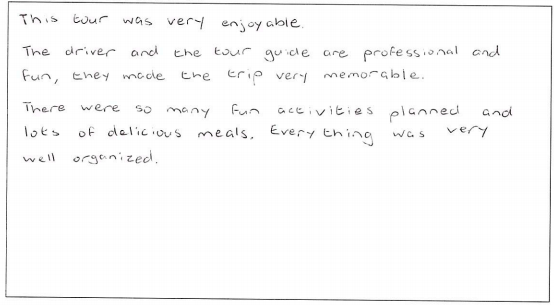 This tour was very enjoyable.
The driver and the tour guide are professional and
fun, they made the trip very memorable.
There were so many fun activities planned and
lots of delicious meals. Everything was very
well organized.